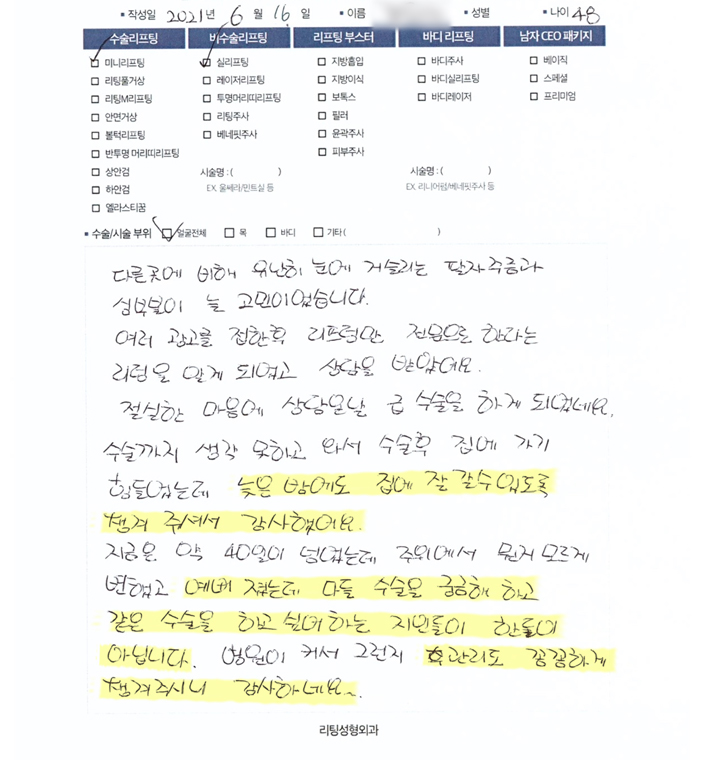 ▪ 작성일 2021년 6월 16일 ▪ 이름 ▪ 성별 ▪ 나이 48
수술리프팅 비수술리프팅 리프팅 부스터 바디 리프팅 남자 CEO 패키지
□ 미니리프팅 □ 실리프팅 □ 지방흡입 □ 바디주사 □ 베이직
□ 리팅풀거상 □ 레이저리프팅 □ 지방이식 □ 바디실리프팅 □ 스페셜
□ 리팅M리프팅 □ 투명머리띠리프팅 □ 보톡스 □ 바디레이저 □ 프리미엄
□ 안면거상 □ 리팅주사 □ 필러
□ 볼턱리프팅 □ 베네핏주사 □ 윤곽주사
□ 반투명 머리띠리프팅 □ 피부주사
□ 상안검 시술명 : ( ) 시술명 : ( )
□ 하안검 EX. 울쎄라/민트실 등 EX. 리니어펌/베네핏주사 등
□ 엘라스티꿈
▪ 수술/시술 부위 □ 얼굴전체 □ 목 □ 바디 □ 기타 ( )
다른곳에 비해 유난히 눈에 거슬리는 팔자주름과
심부볼이 늘 고민이었습니다.
여러 광고를 접한후 리프팅만 전문으로 한다는
리팅을 알게 되었고 상담을 받았어요.
절실한 마음에 상담온날 급 수술을 하게 되었네요.
수술까지 생각 못하고 와서 수술후 집에 가기
힘들었는데 늦은 밤에도 집에 잘 갈수있도록
챙겨 주셔서 감사했어요.
지금은 약 40일이 넘었는데 주위에서 뭔지 모르게
변했고 예뻐 졌는데 다들 수술을 궁금해 하고
같은 수술을 하고 싶어하는 지인들이 한둘이
아닙니다. 병원이 커서 그런지 관리도 꼼꼼하게
챙겨주시니 감사하네요~
리팅성형외과